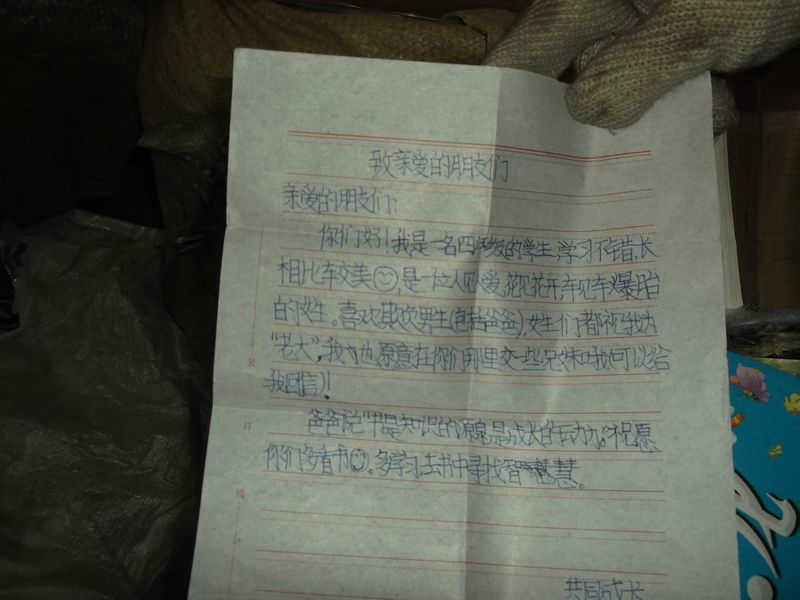 致亲爱的朋友们
亲爱的朋友们:
你们好!我是一名四年级的学生,学习不错,长
相比较美☺,是一位人见人爱,花见花开,车见车爆胎
的女生。喜欢欺负男生(包括爸爸),女生们都视我为
"老大",我也愿意在你们那里交一些兄妹(可以给
我回信)!
爸爸说"书是知识的源泉是成长的动力",祝愿
你们多看书☺,多学习,去书中寻找智慧。
共同成长